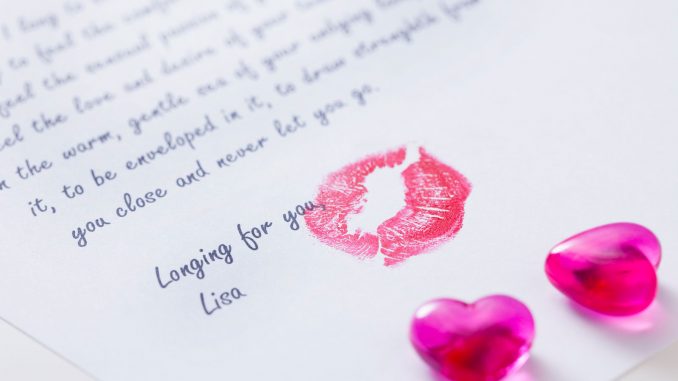 I long to
to feel the
feel the sensual passion of
feel the love and desire of your
in the warm, gentle sea of your undying
it, to be enveloped in it, to draw strength from
you close and never let you go.
Longing for you,
Lisa